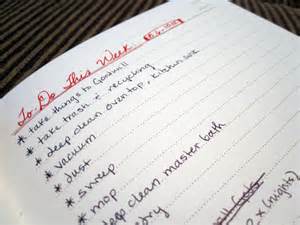 To Do This Week
* take things to Goodwill
* take trash & recycling
* deep clean oven top, kitchen sink
* vacuum
* dust
* sweep
* mop
deep clean master bath